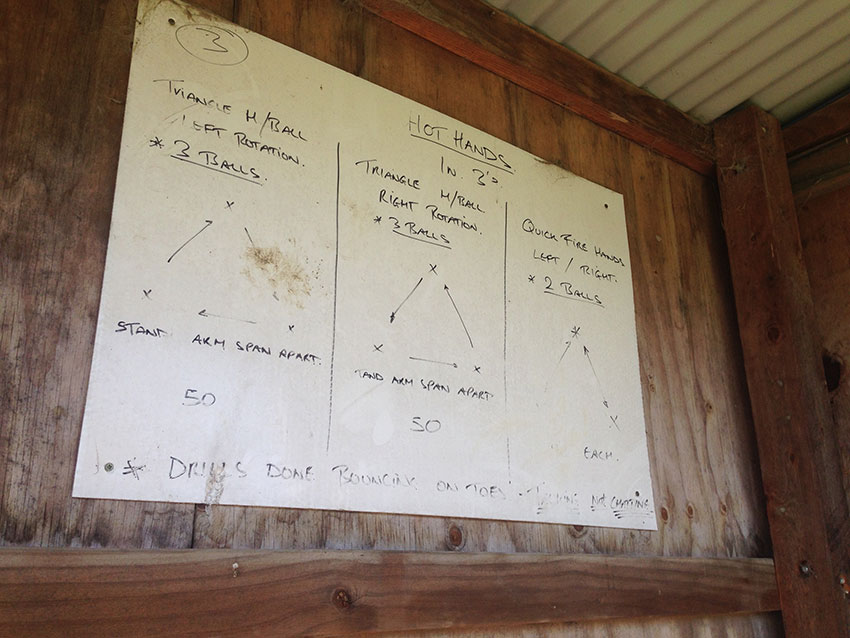 3
HOT HANDS
IN 3's
TRIANGLE M/BALL
LEFT ROTATION.
* 3 BALLS.
x
x
x
STAND ARM SPAN APART.
50
TRIANGLE M/BALL
RIGHT ROTATION.
* 3 BALLS
x
x
x
TAND ARM SPAN APART
50
QUICK FIRE HANDS
LEFT / RIGHT.
* 2 BALLS
x
x
EACH.
* DRILLS DONE BOUNCING ON TOES - TALKING NOT CHATTING